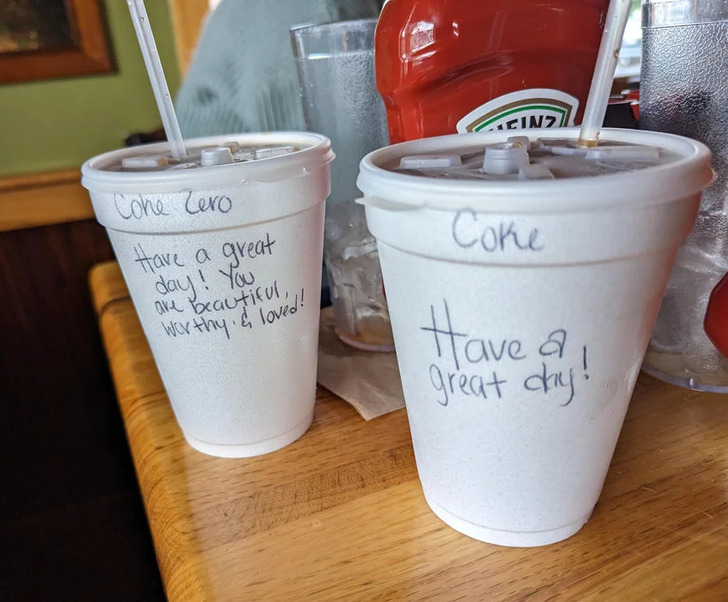 Coke Zero
Have a great
day! You
are beautiful,
worthy & loved!
HEINZ
Coke
Have a
great day!